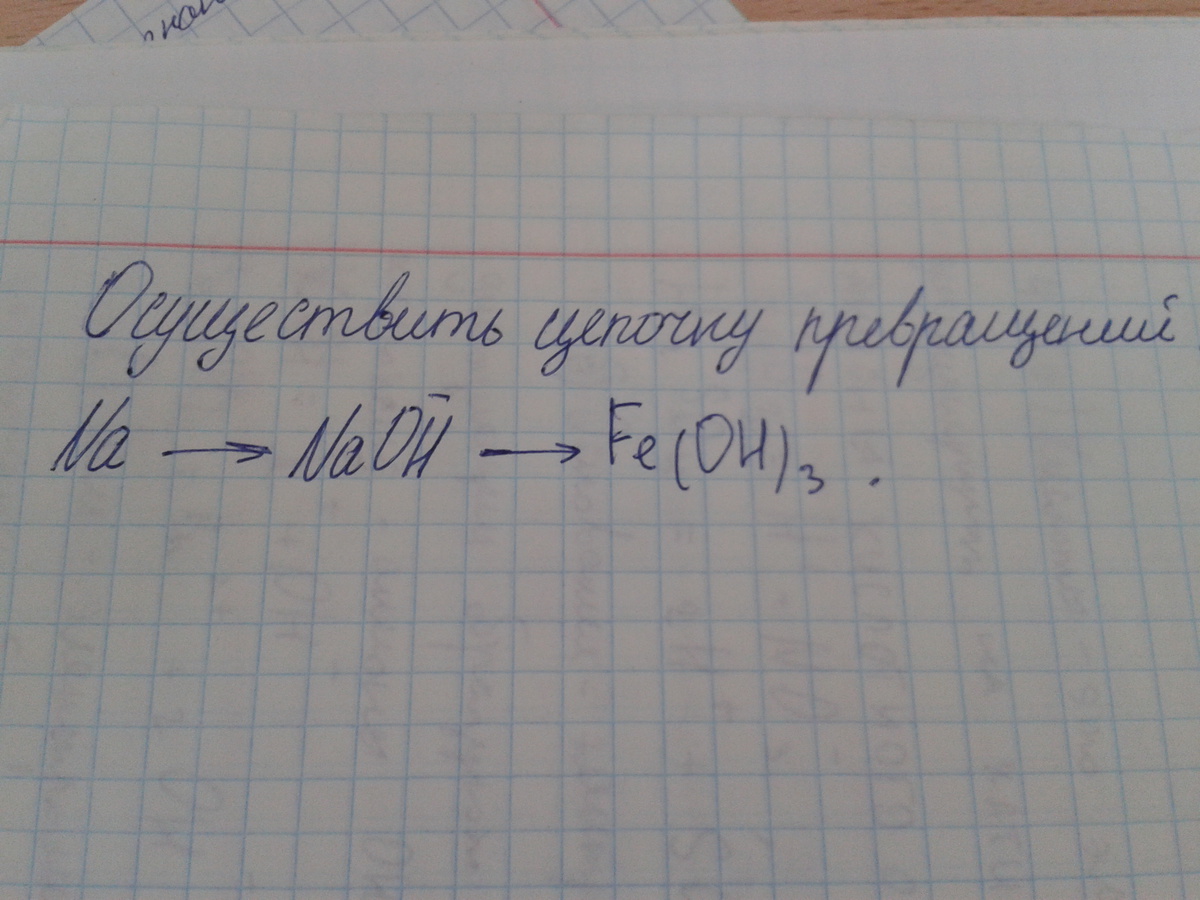 Осуществить цепочку превращений
Na → NaOH → Fe(OH)₃ .